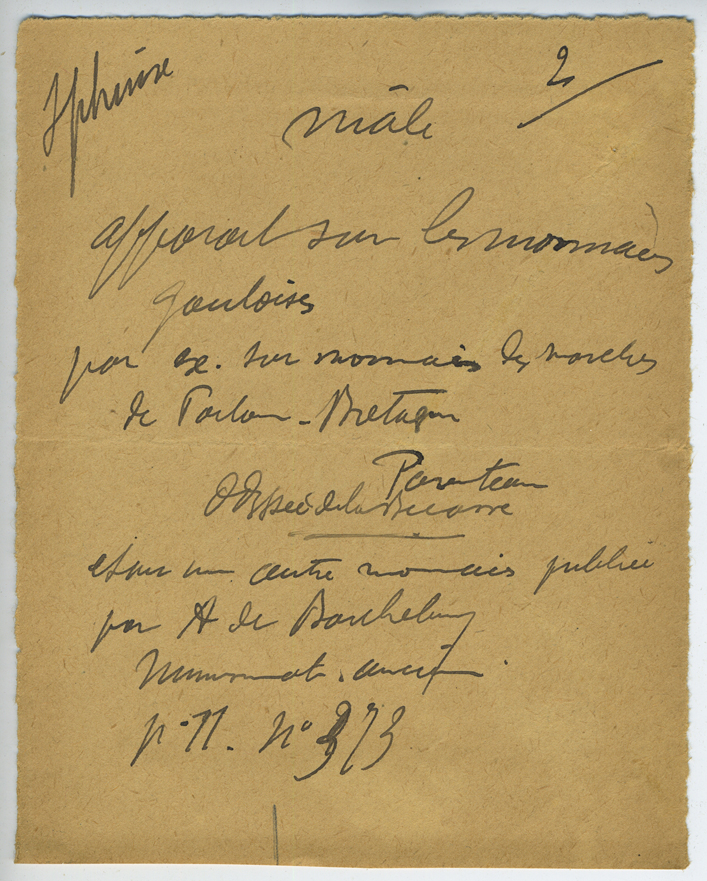 Sphinx
2
mâle
apparait sur les monnaies
gauloises
par ex. sur monnaies des marches
de Poitou - Bretagne
Parenteau
et sur une autre monnaie publiée
par A de Barthelemy
Numismat. ancienne.
p. 77. n° 373